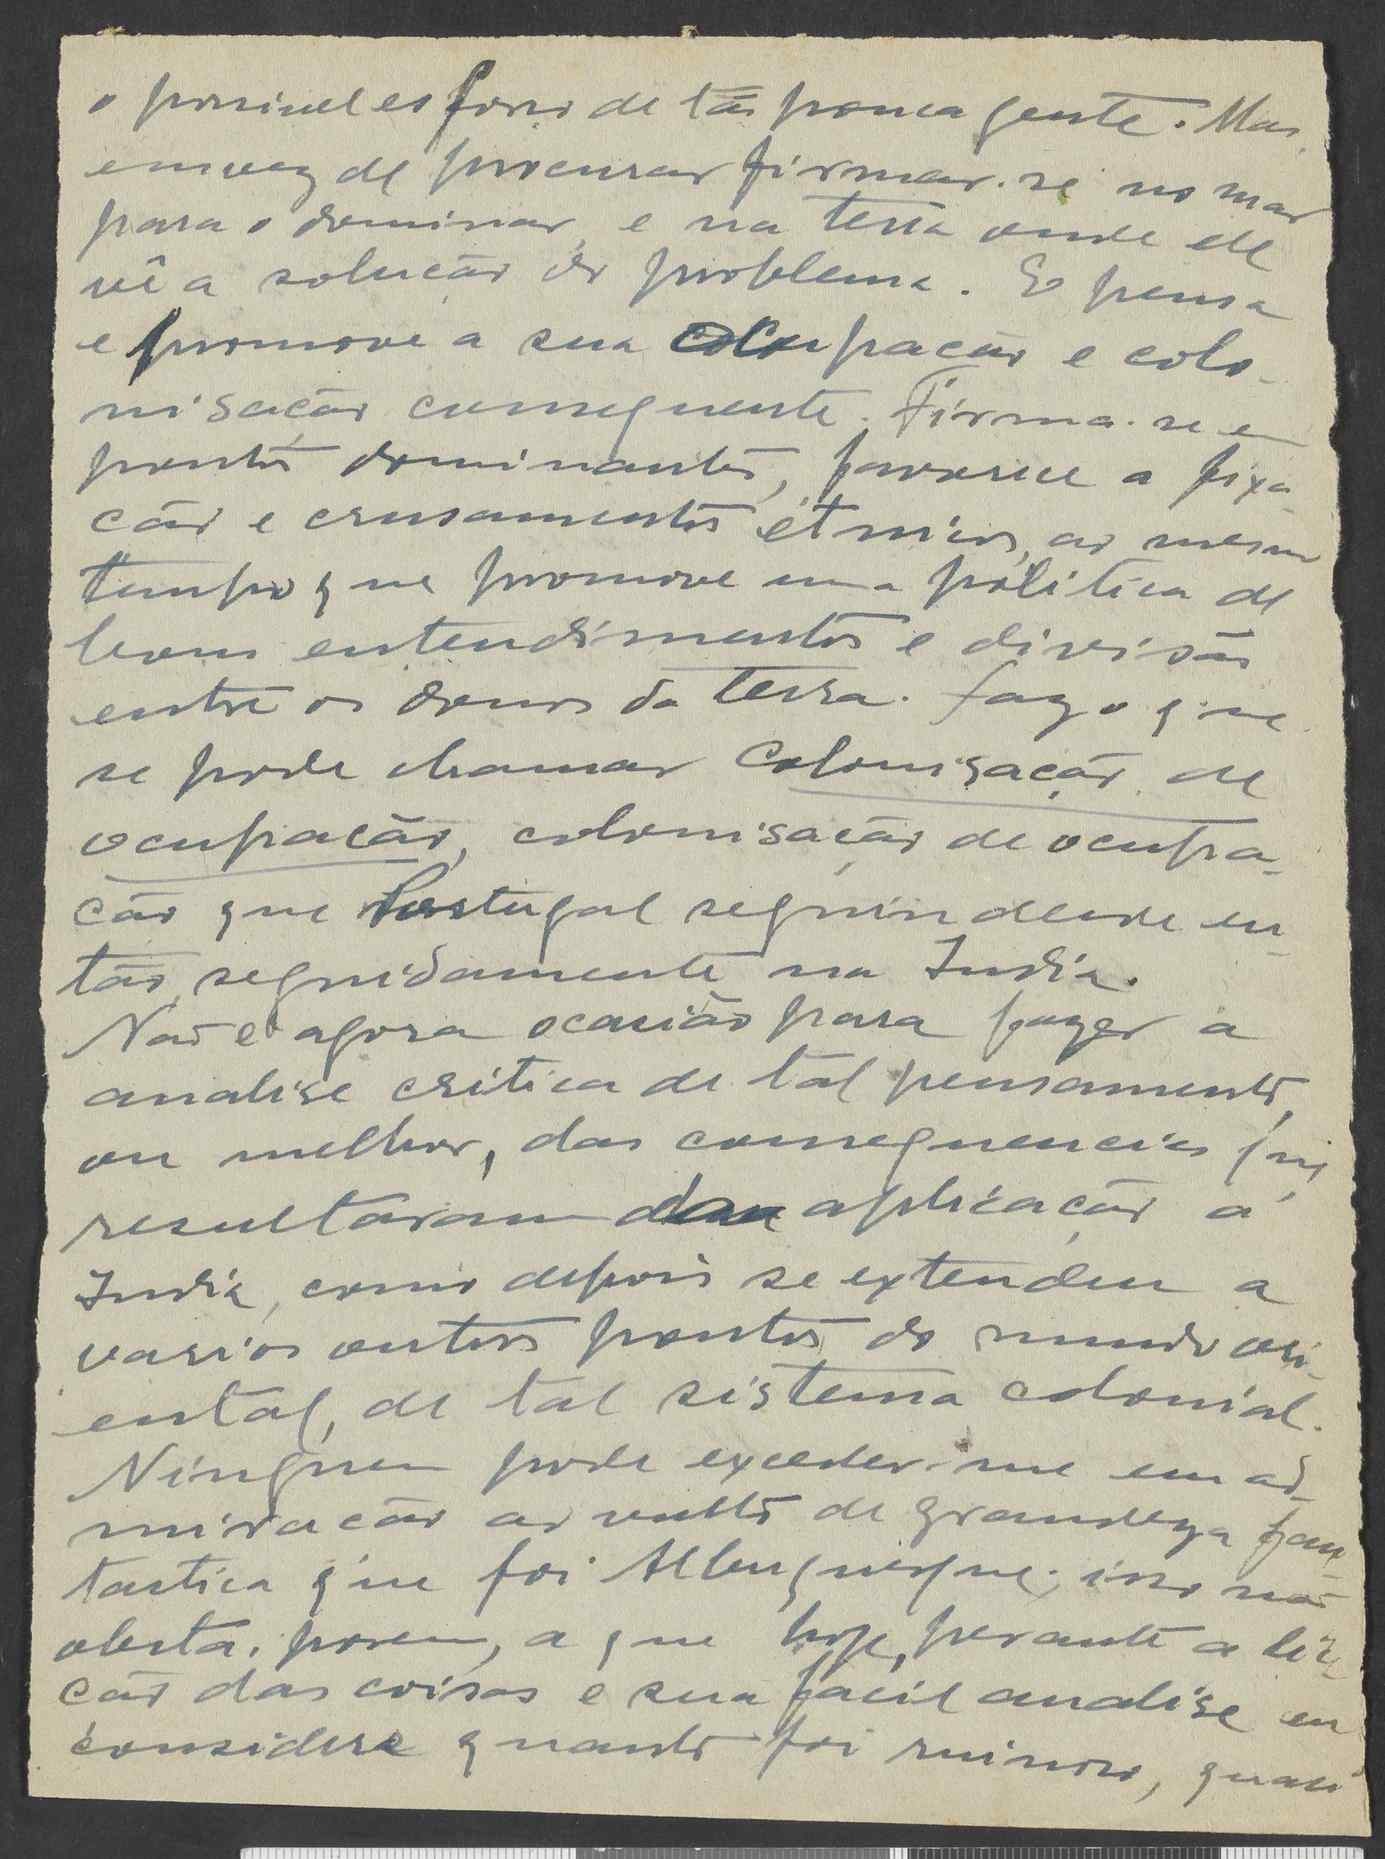 o possivel esforso de tão pouca gente. Mas,
em vez de procurar firmar-se no mar
para o dominar, e na terra onde ele
vê a solução do problema. E pensa
e promove a sua ocupação e colo-
nisação consequente. Firma-se em
pontos dominantes, favorece a fixa-
ção e crusamentos étnicos, ao mesmo
tempo que promove uma politica de
bons entendimentos e divisão
entre os donos da terra. Faz o que
se pode chamar colonisação de
ocupação, colonisação de ocupa-
ção que Portugal seguiu desde en-
tão, seguidamente na India.
Não é agora ocasião para fazer a
analise critica de tal pensamento,
ou melhor, das consequencias que
resultaram da aplicação á
India, como depois se extendeu a
varios outros pontos do mundo ori-
ental, de tal sistema colonial.
Ninguem pode exceder-me em ad-
miração ao vulto de grandeza fan-
tastica que foi Albuquerque; isso não
obsta, porem, a que hoje, perante a li-
ção das coisas e sua facil analise eu
considere quanto foi ruinoso, quasi